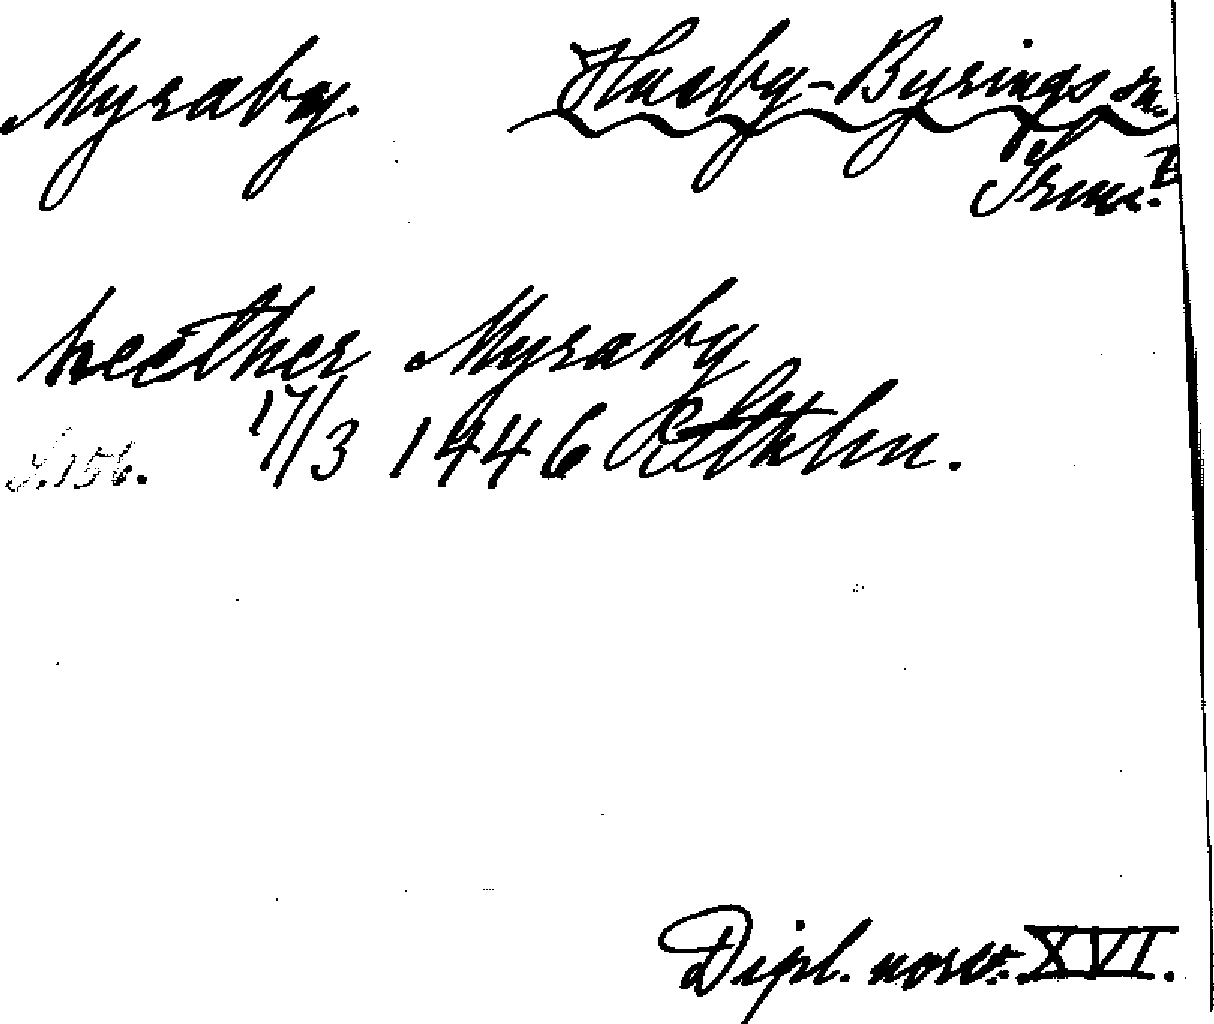 Myraby. Husby-Byrings sn.
neether Myraby
S.156. 17/3 1446
Dipl. norv. XVI.